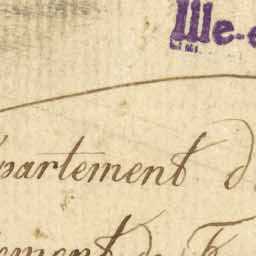 Ille-e
partement d
ement de F